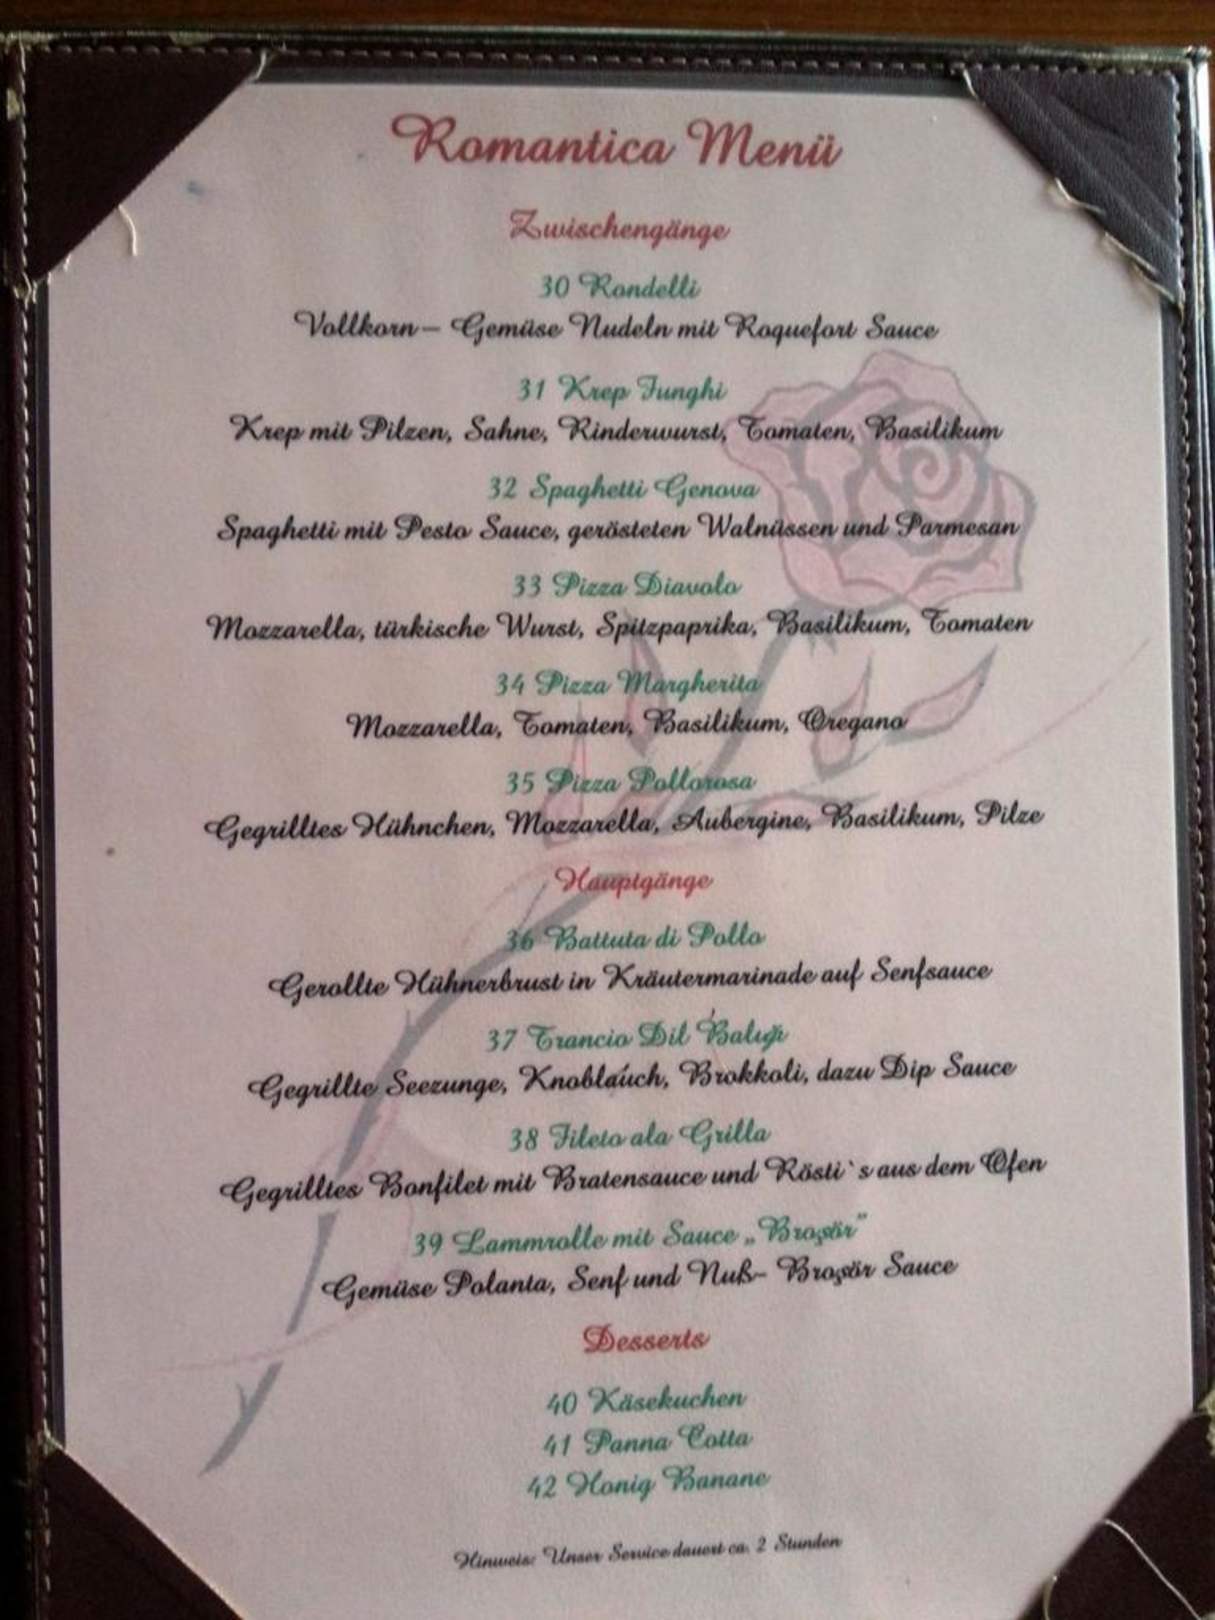 Romantica Menü
Zwischengänge
30 Rondelli
Vollkorn – Gemüse Nudeln mit Roquefort Sauce
31 Krep Funghi
Krep mit Pilzen, Sahne, Rinderwurst, Tomaten, Basilikum
32 Spaghetti Genova
Spaghetti mit Pesto Sauce, gerösteten Walnüssen und Parmesan
33 Pizza Diavolo
Mozzarella, türkische Wurst, Spitzpaprika, Basilikum, Tomaten
34 Pizza Margherita
Mozzarella, Tomaten, Basilikum, Oregano
35 Pizza Pollorosa
Gegrilltes Hühnchen, Mozzarella, Aubergine, Basilikum, Pilze
Hauptgänge
36 Battuta di Pollo
Gerollte Hühnerbrust in Kräutermarinade auf Senfsauce
37 Trancio Dil Balığı
Gegrillte Seezunge, Knoblauch, Brokkoli, dazu Dip Sauce
38 Fileto ala Grilla
Gegrilltes Bonfilet mit Bratensauce und Rösti`s aus dem Ofen
39 Lammrolle mit Sauce „Broşör"
Gemüse Polanta, Senf und Nuß- Broşör Sauce
Desserts
40 Käsekuchen
41 Panna Cotta
42 Honig Banane
Hinweis: Unser Service dauert ca. 2 Stunden